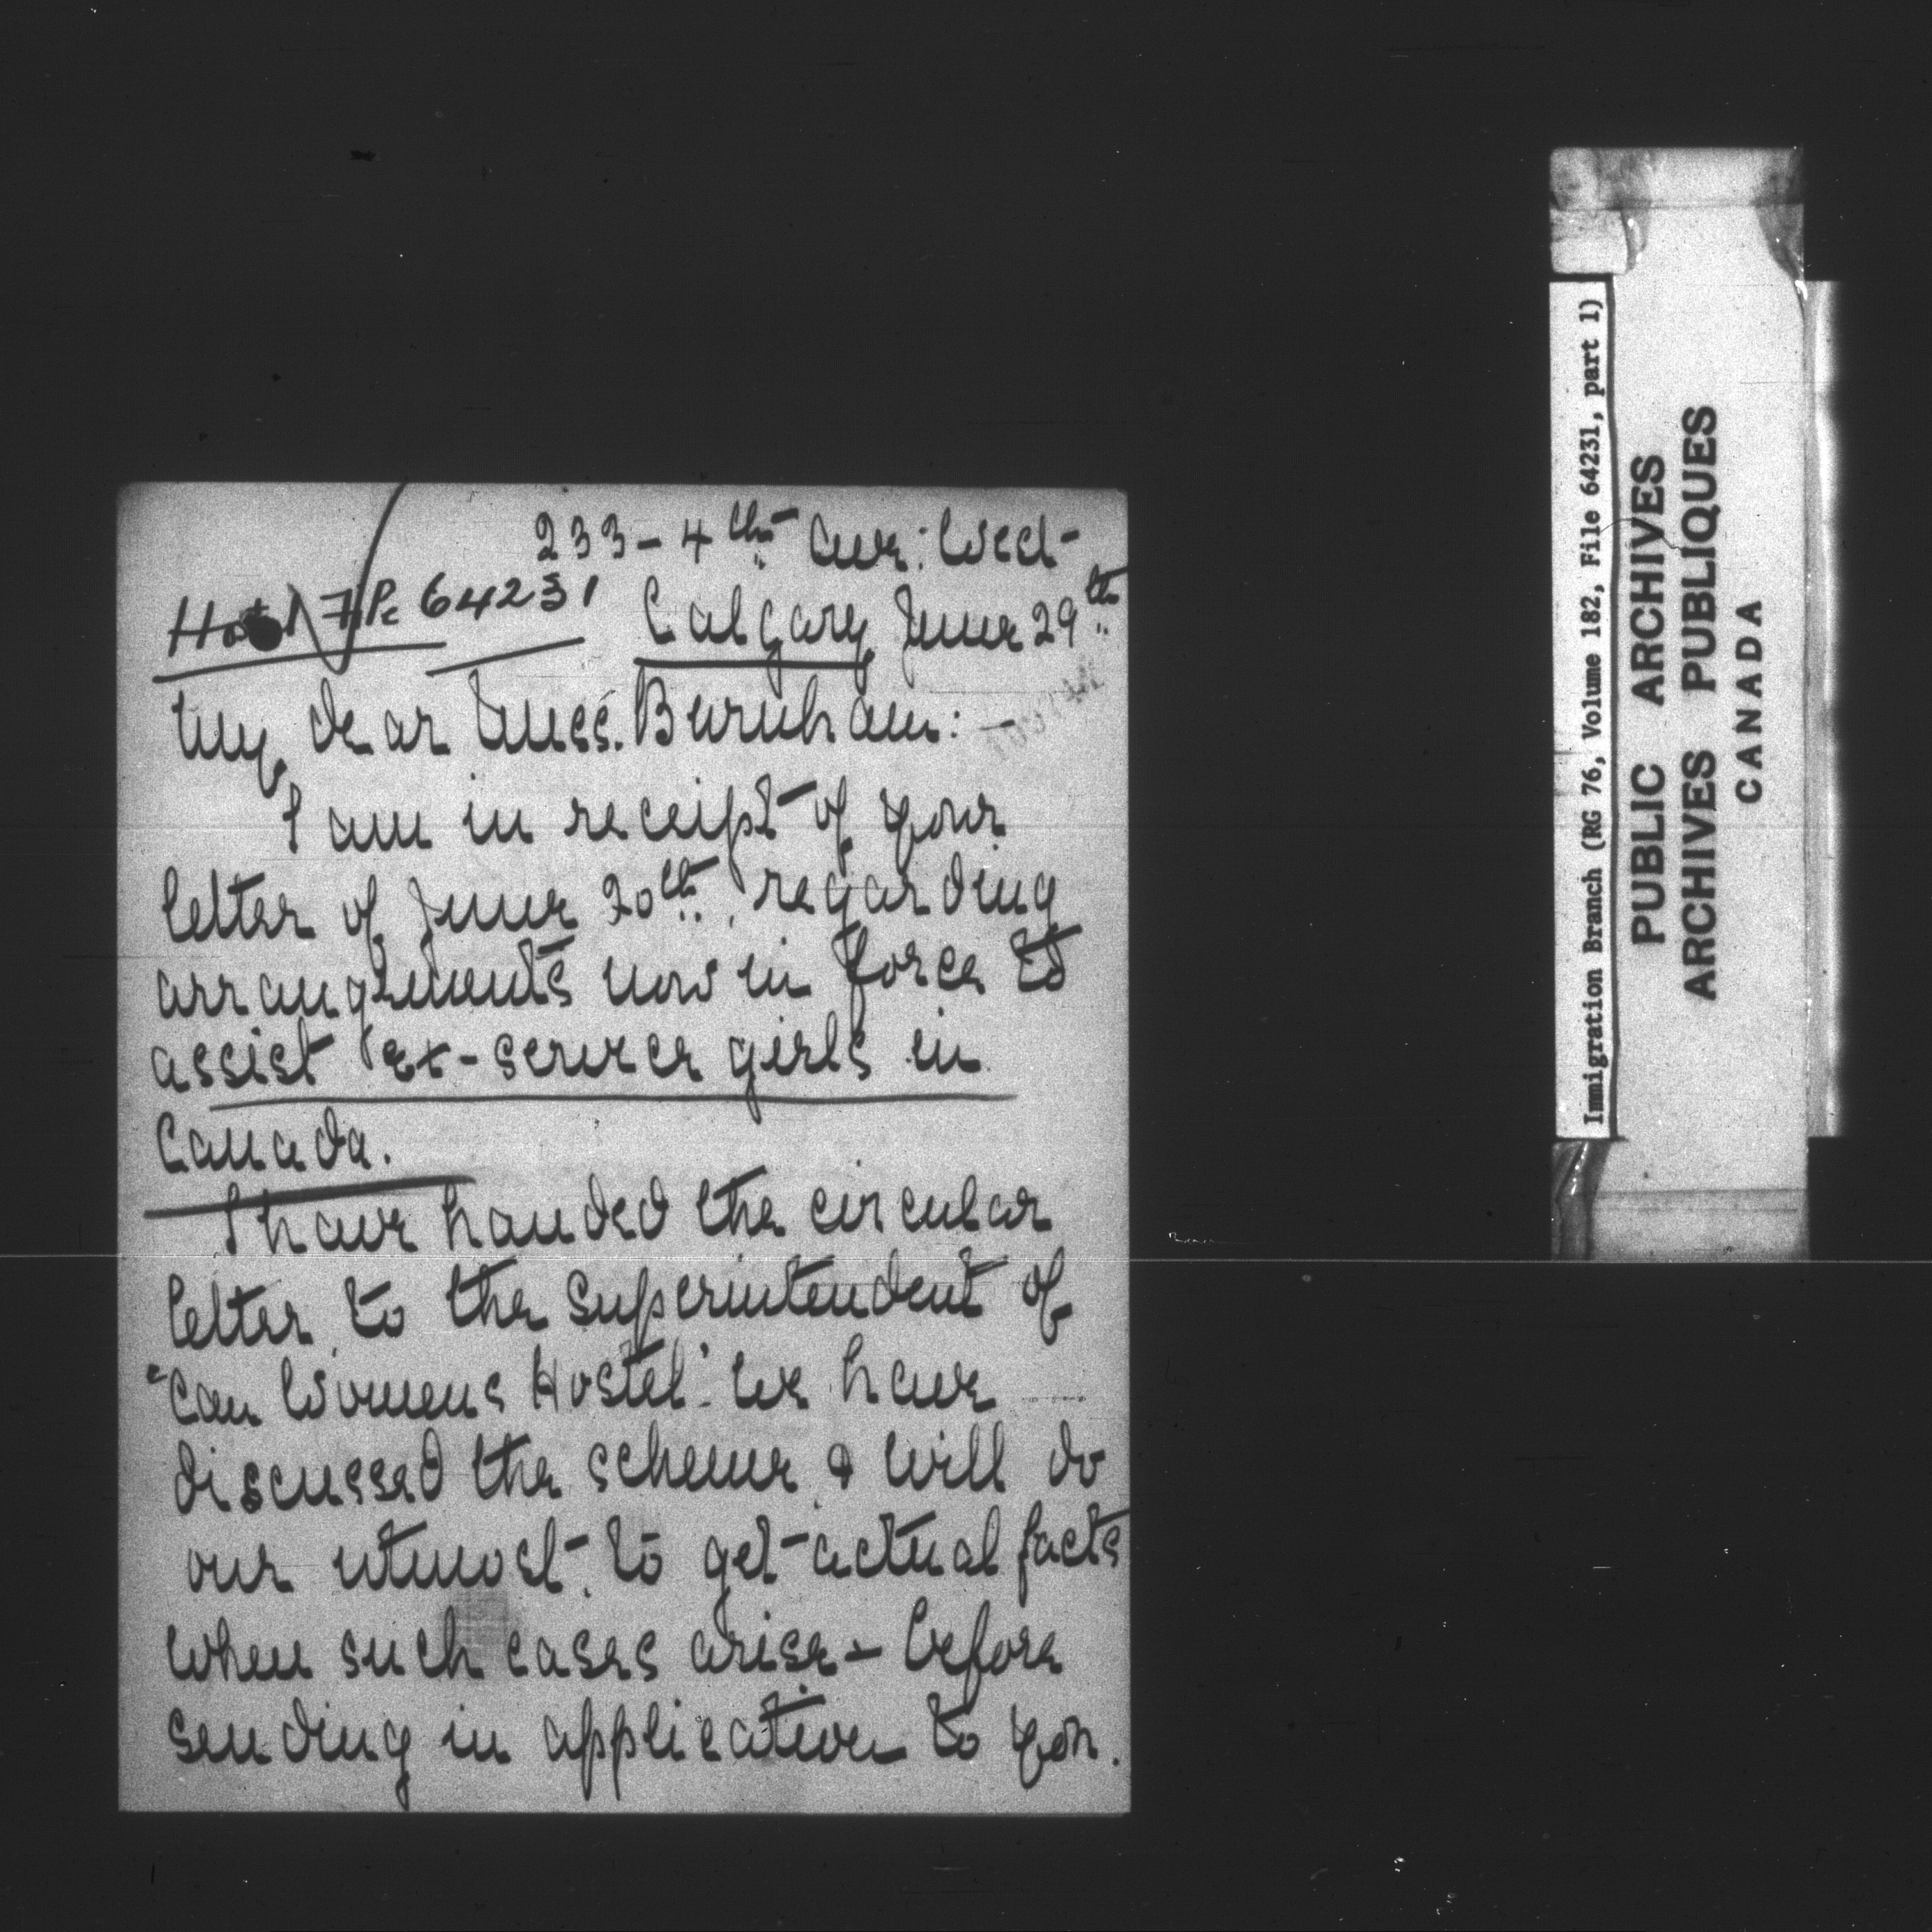 233 - 4th Ave: West
File 64231
Calgary June 29th
My dear Miss. Burnham: -
I am in receipt of your
letter of June 20th, regarding
arrangements now in force to
assist ex-service girls in
Canada.
I have handed the circular
letter to the Superintendent of
"Can Womens Hostel". We have
discussed the scheme & will do
our utmost to get actual facts
when such cases arise - before
sending in application to you.
Immigration Branch (RG 76, Volume 182, File 64231, part 1)
PUBLIC ARCHIVES
ARCHIVES PUBLIQUES
CANADA